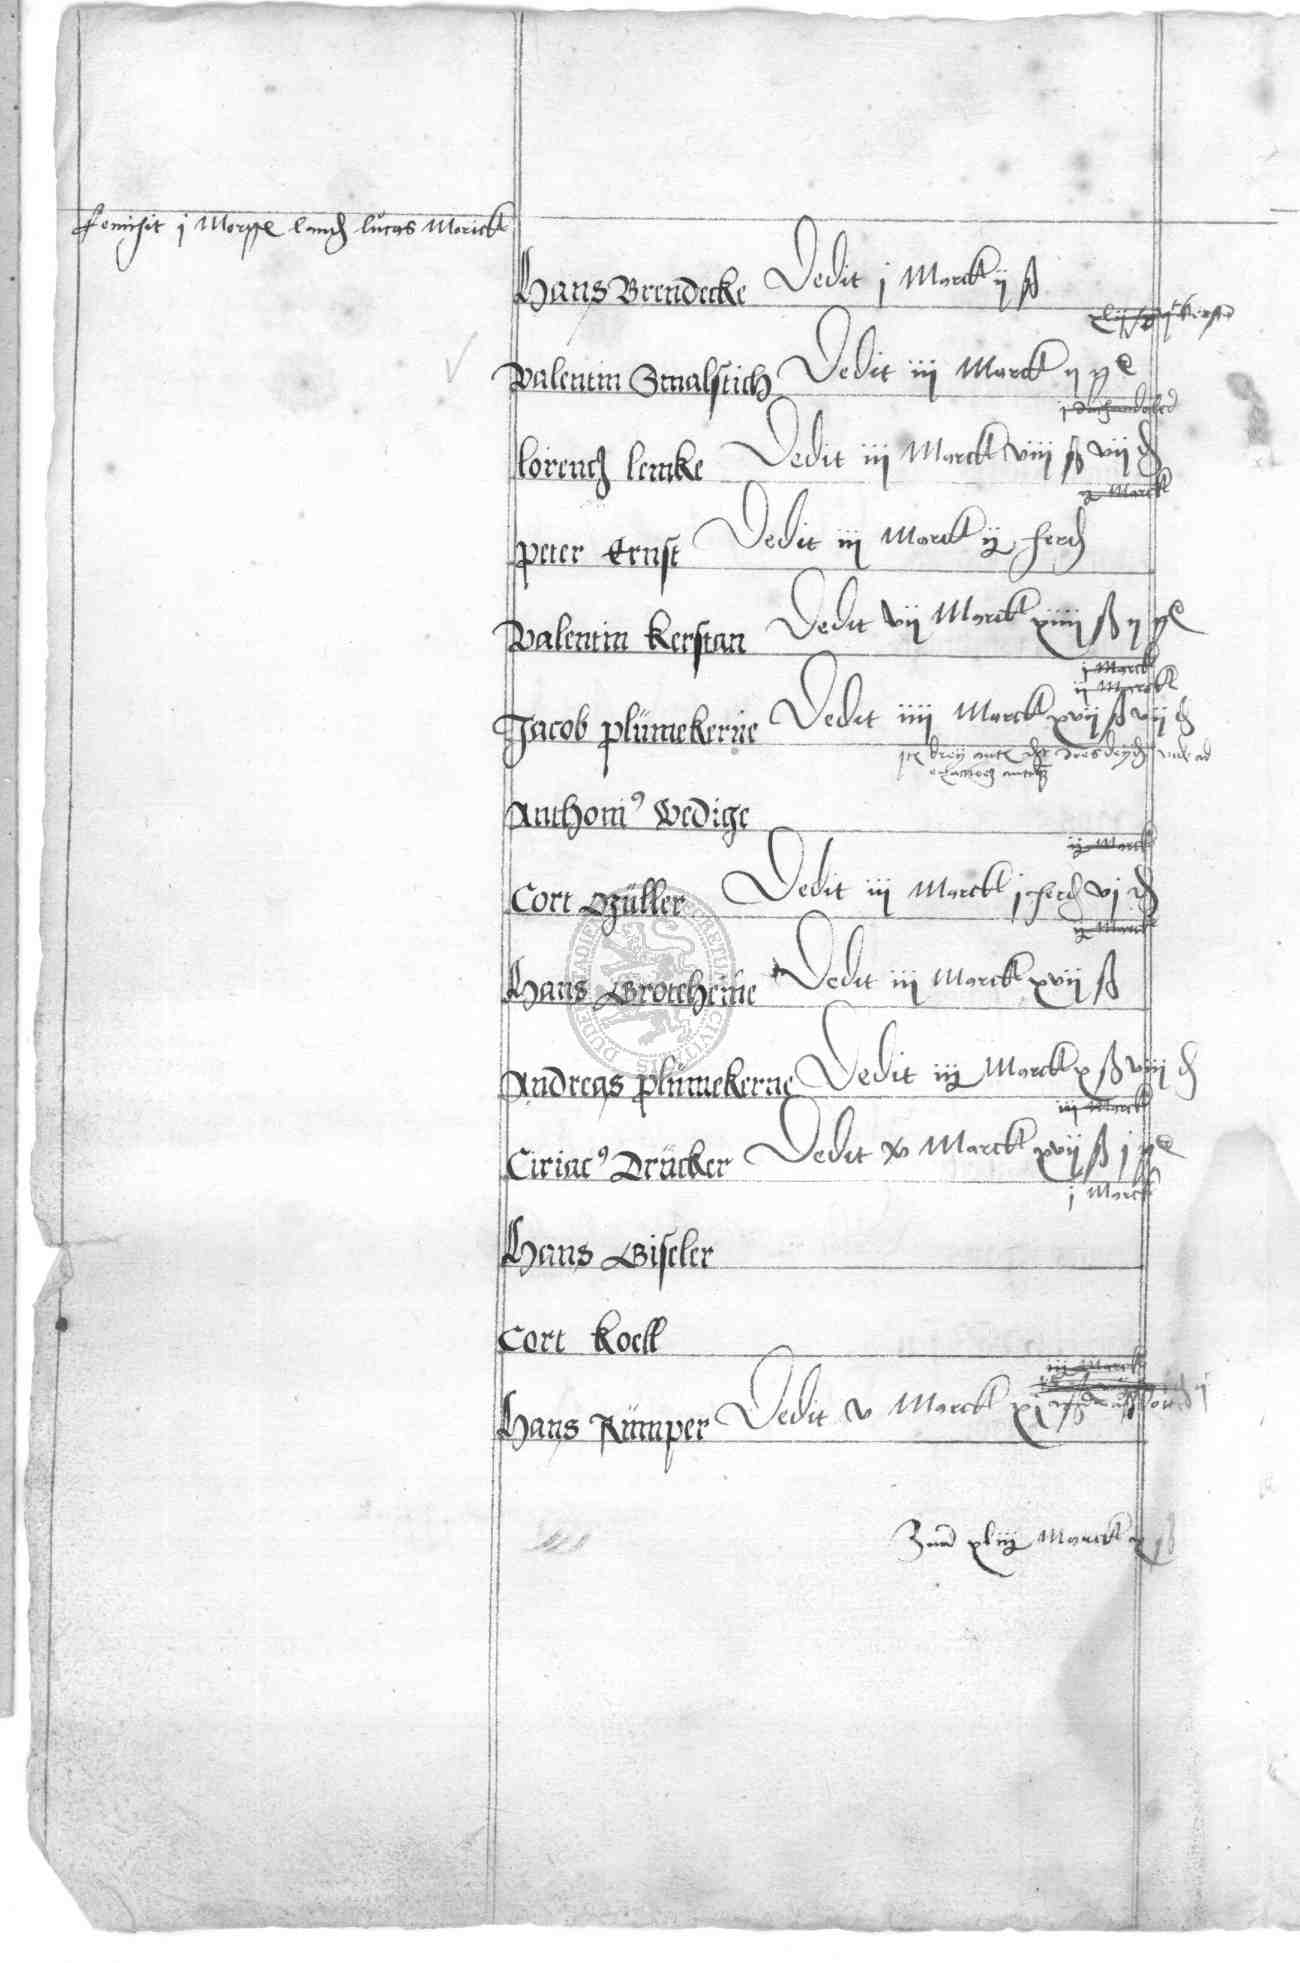 j Morge land lucas Marick
Hans Brendecke Dedit j Marck ij ß
Valentin Smalstich Dedit iij Marck ij
lorentz lemke Dedit iij Marck viij ß vij ₰
ij Marck
Peter Ernst Dedit iij Marck ij ferd
Valentin Kerstan Dedit vij Marck xiiij ß ij
j Marck
ij Marck
Jacob plümekerne Dedit iiij Marck xvij ß vij ₰
Anthoniꝰ Wedige
ij Marck
Cort Müller Dedit iij Marck j ferd vj ₰
ij Marck
Hans Groteheine Dedit iij Marck xvij ß
Andreas plümekerne Dedit iij Marck x ß viij ₰
iij Marck
Ciriacꝰ Drücker Dedit xv Marck xvij ß j
j Marck
Hans Giseler
Cort Koell
iij Marck
Hans Rümper Dedit v Marck xj ß
xliij Marck